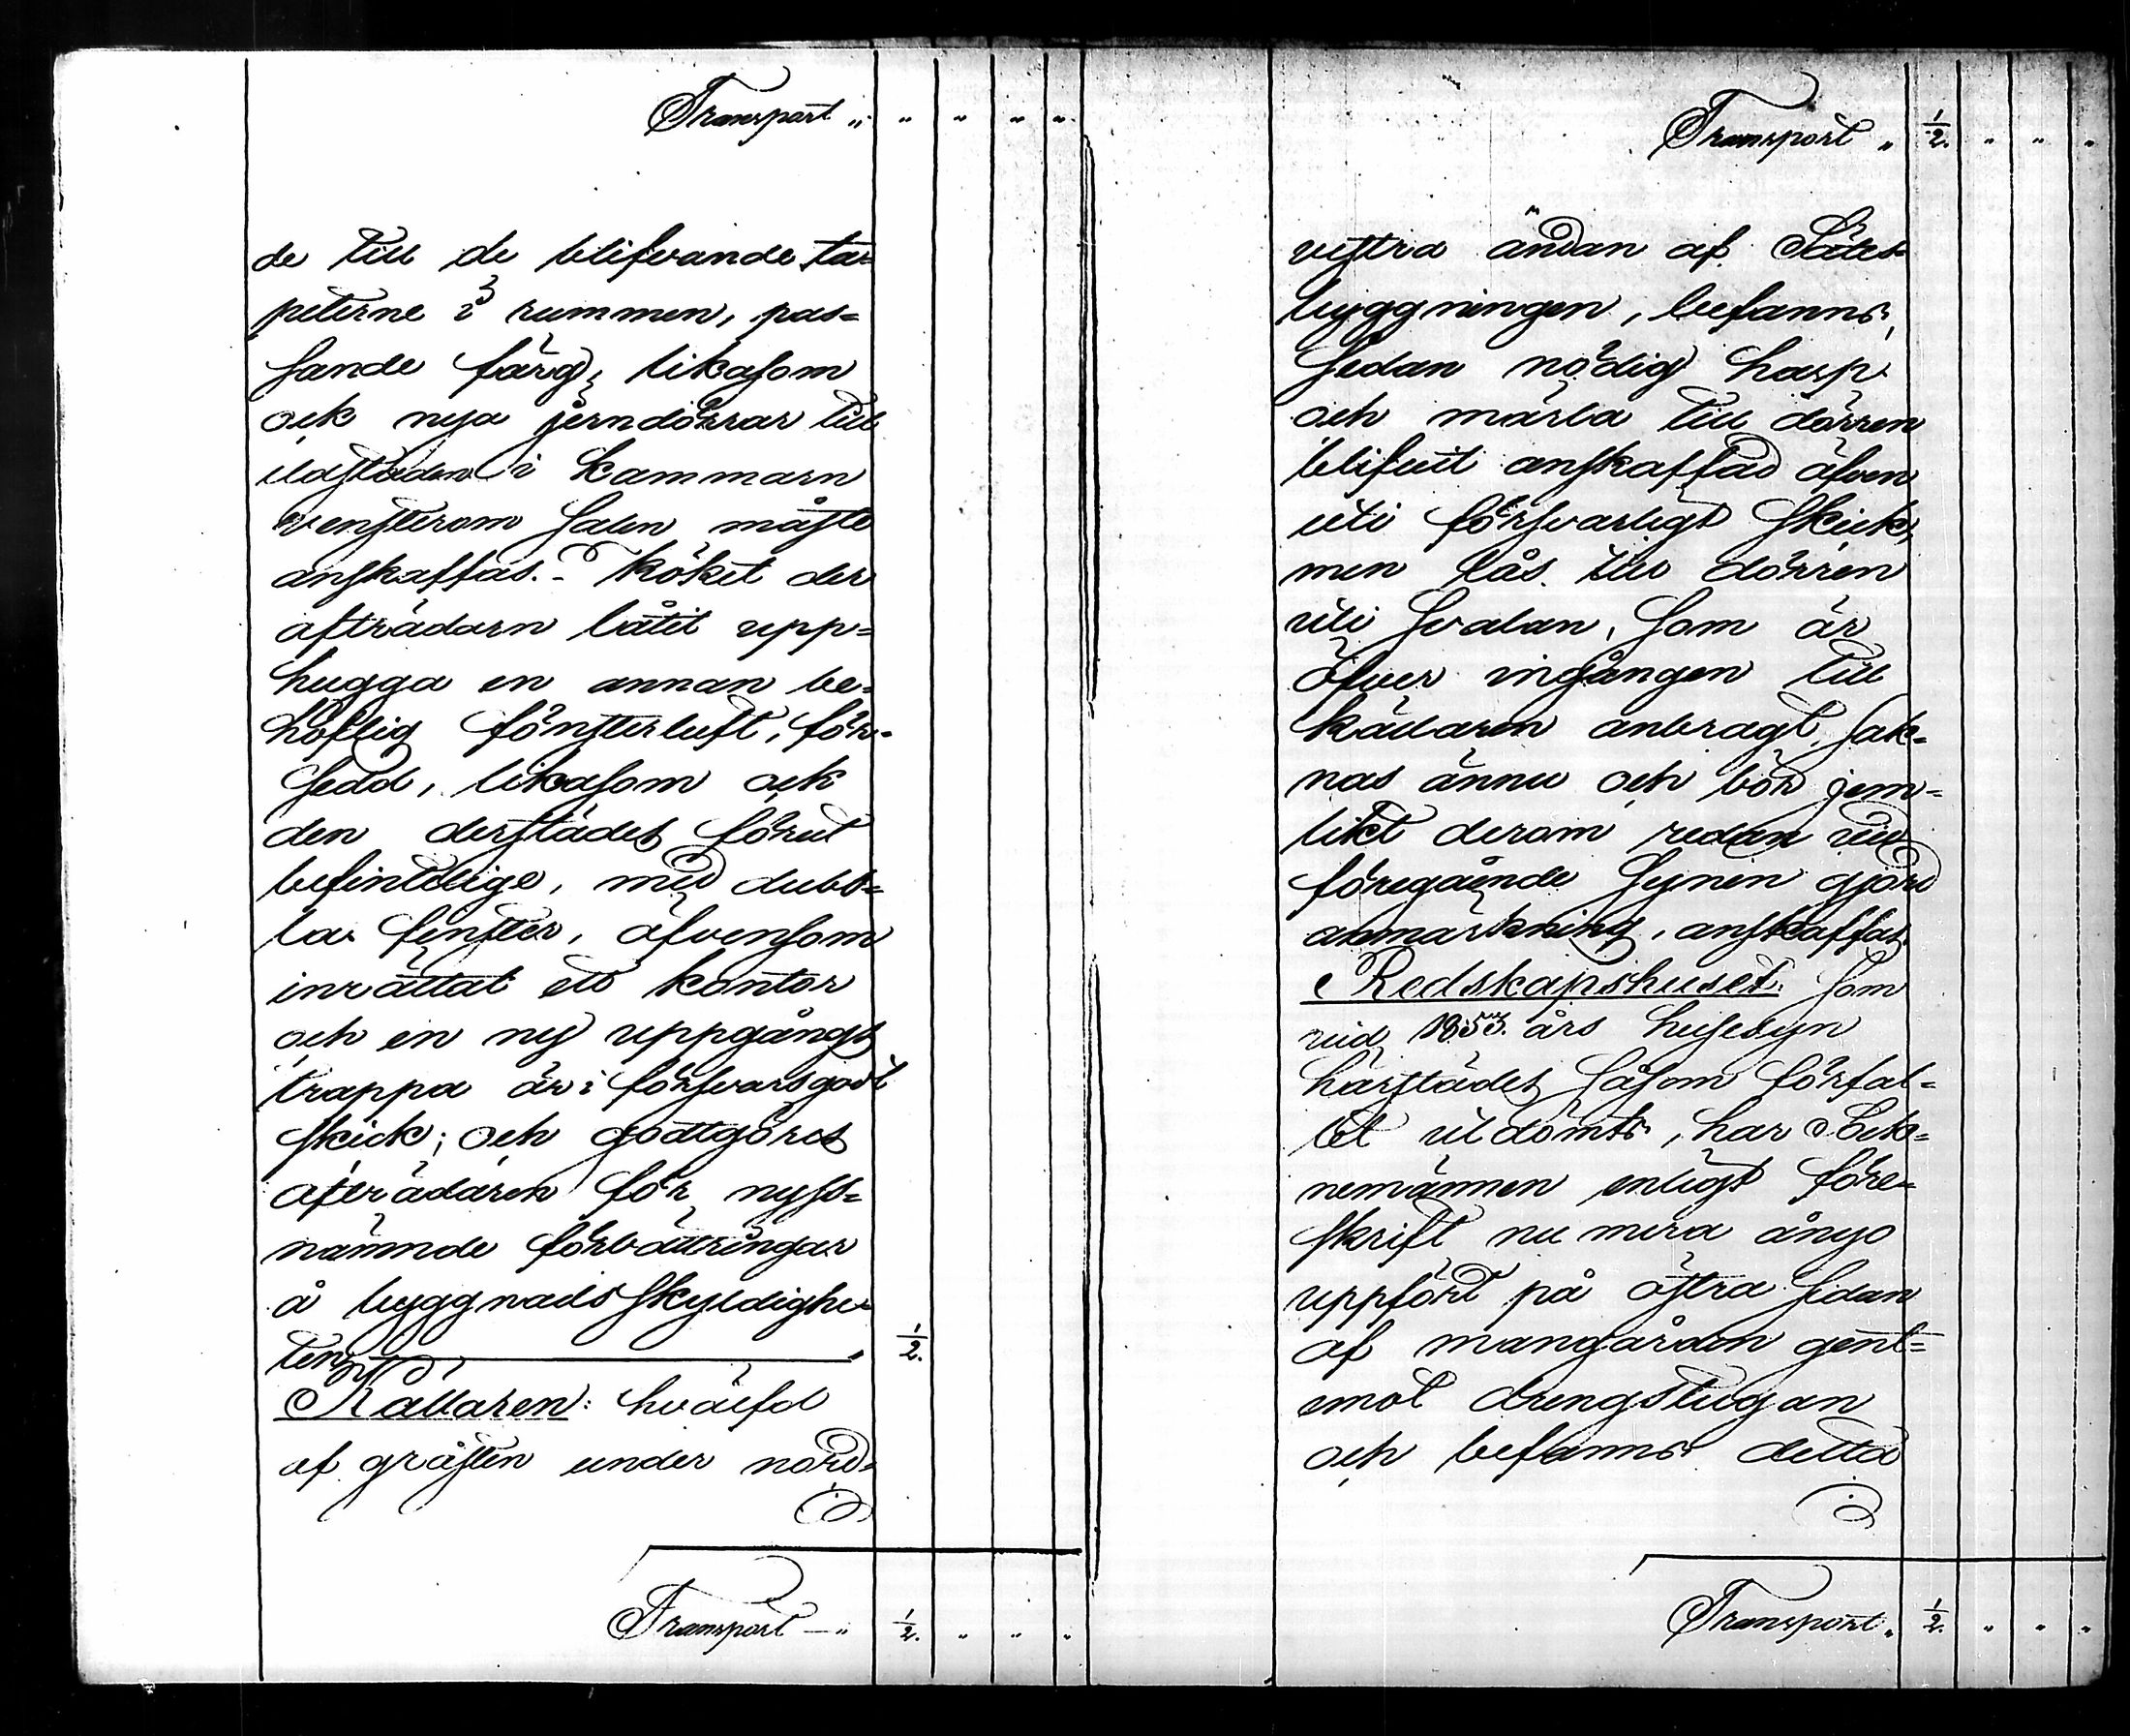 Transport „ „ „ „ „
de till de blifvande ta=
peterne i rummen, pas=
sande färg; likasom
ock nya jerndörrar till
eldstaden i kammarn
vensterom salen måste
anskaffas. - Köket der
afträdarn låtit upp=
hugga en annan be=
höflig fönsterluft, för=
sedd, likasom ock
den derstädes förut
befintelige, med dubb=
la fenster, äfvensom
inrättat ett kontor
och en ny uppgångs
trappa är i försvarsgodt
skick; och godtgöres
afträdaren för nyss=
nämnde förbättringar
å byggnadsskyldighe
ten „ 1/2.
Källaren: hvälfd
af gråsten under nord=
Transport — „ 1/2. „ „ „
Transport „ 1/2. „ „ „
vestra ändan af Sätes=
byggningen, befanns,
sedan nödig hasp
och märla till dörren
blifvit anskaffad äfven
uti försvarligt skick,
men lås till dörren
uti svalan, som är
öfver ingången till
källaren anbragt, sak=
nas ännu och bör jem=
likt derom redan vid
föregående synen gjord
anmärkning, anskaffas.
Redskapshuset. som
vid 1853. års husesyn
härstädes såsom förfal=
let utdömts, har Sock=
nemännen enligt före=
skrift nu mera ånyo
uppfört på östra sidan
af mangården gent=
emot drengstugan
och befanns detta
Transport „ 1/2. „ „ „